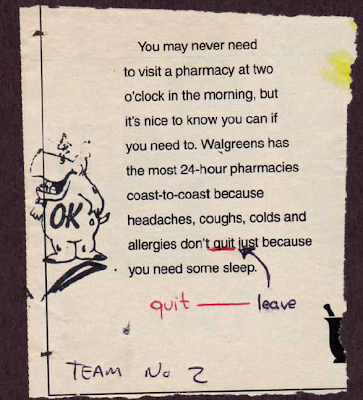 You may never need
to visit a pharmacy at two
o'clock in the morning, but
it's nice to know you can if
you need to. Walgreens has
the most 24-hour pharmacies
coast-to-coast because
OK
headaches, coughs, colds and
allergies don't quit just because
you need some sleep.
quit leave
TEAM No 2